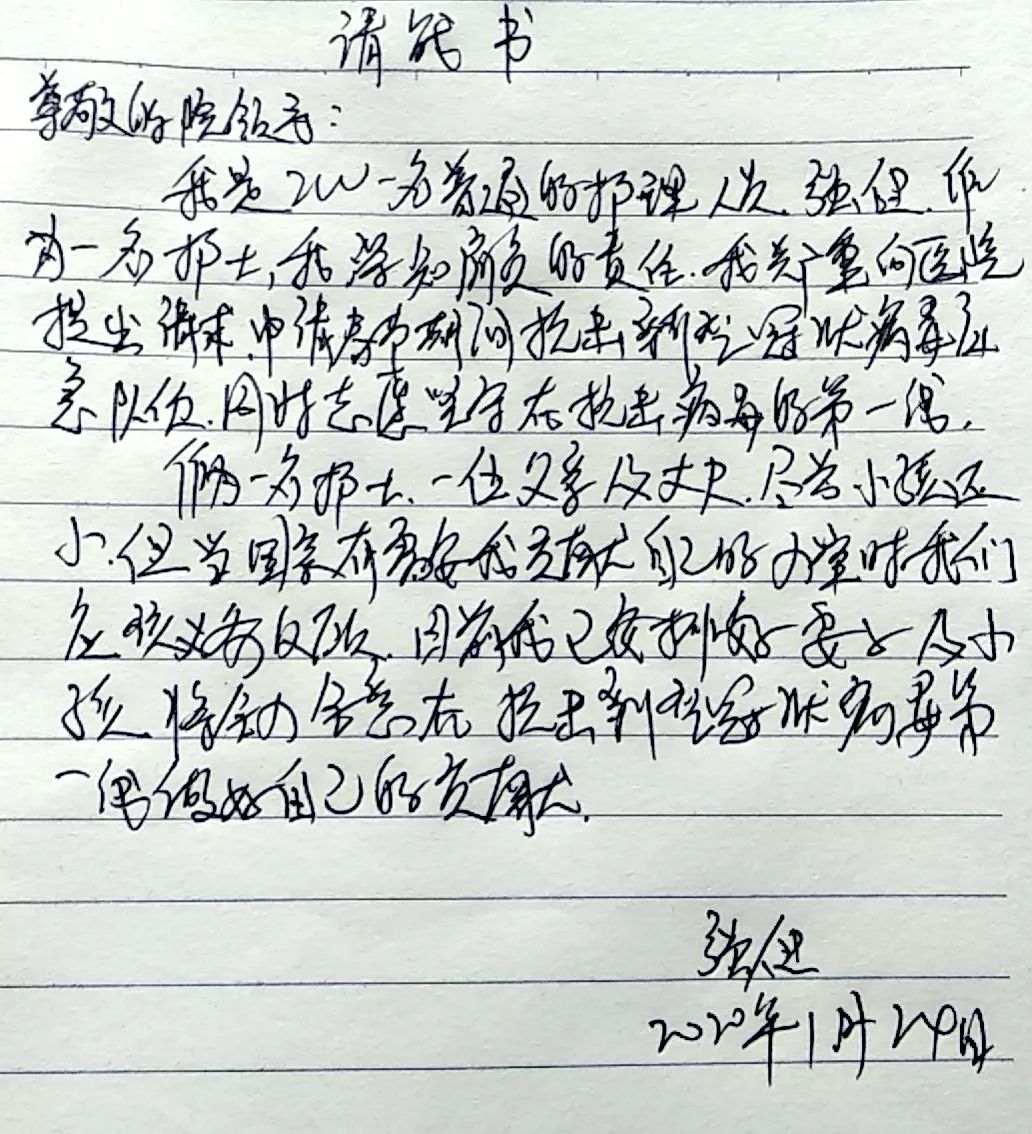 请战书
尊敬的院领导:
我是ICU一名普通的护理人员.张健.作
为一名护士,我深知肩负的责任.我郑重向医院
提出请求.申请春节期间抗击新型冠状病毒应
急队伍.同时志愿坚守在抗击病毒的第一线.
作为一名护士.一位父亲及丈夫.尽管小孩还
小.但当国家有需要我贡献自己的力量时我们
应该义务反顾.目前我已安排好妻子及小
孩.将全力全意在抗击新型冠状病毒第
一线做好自己的贡献.
张健
2020年1月24日